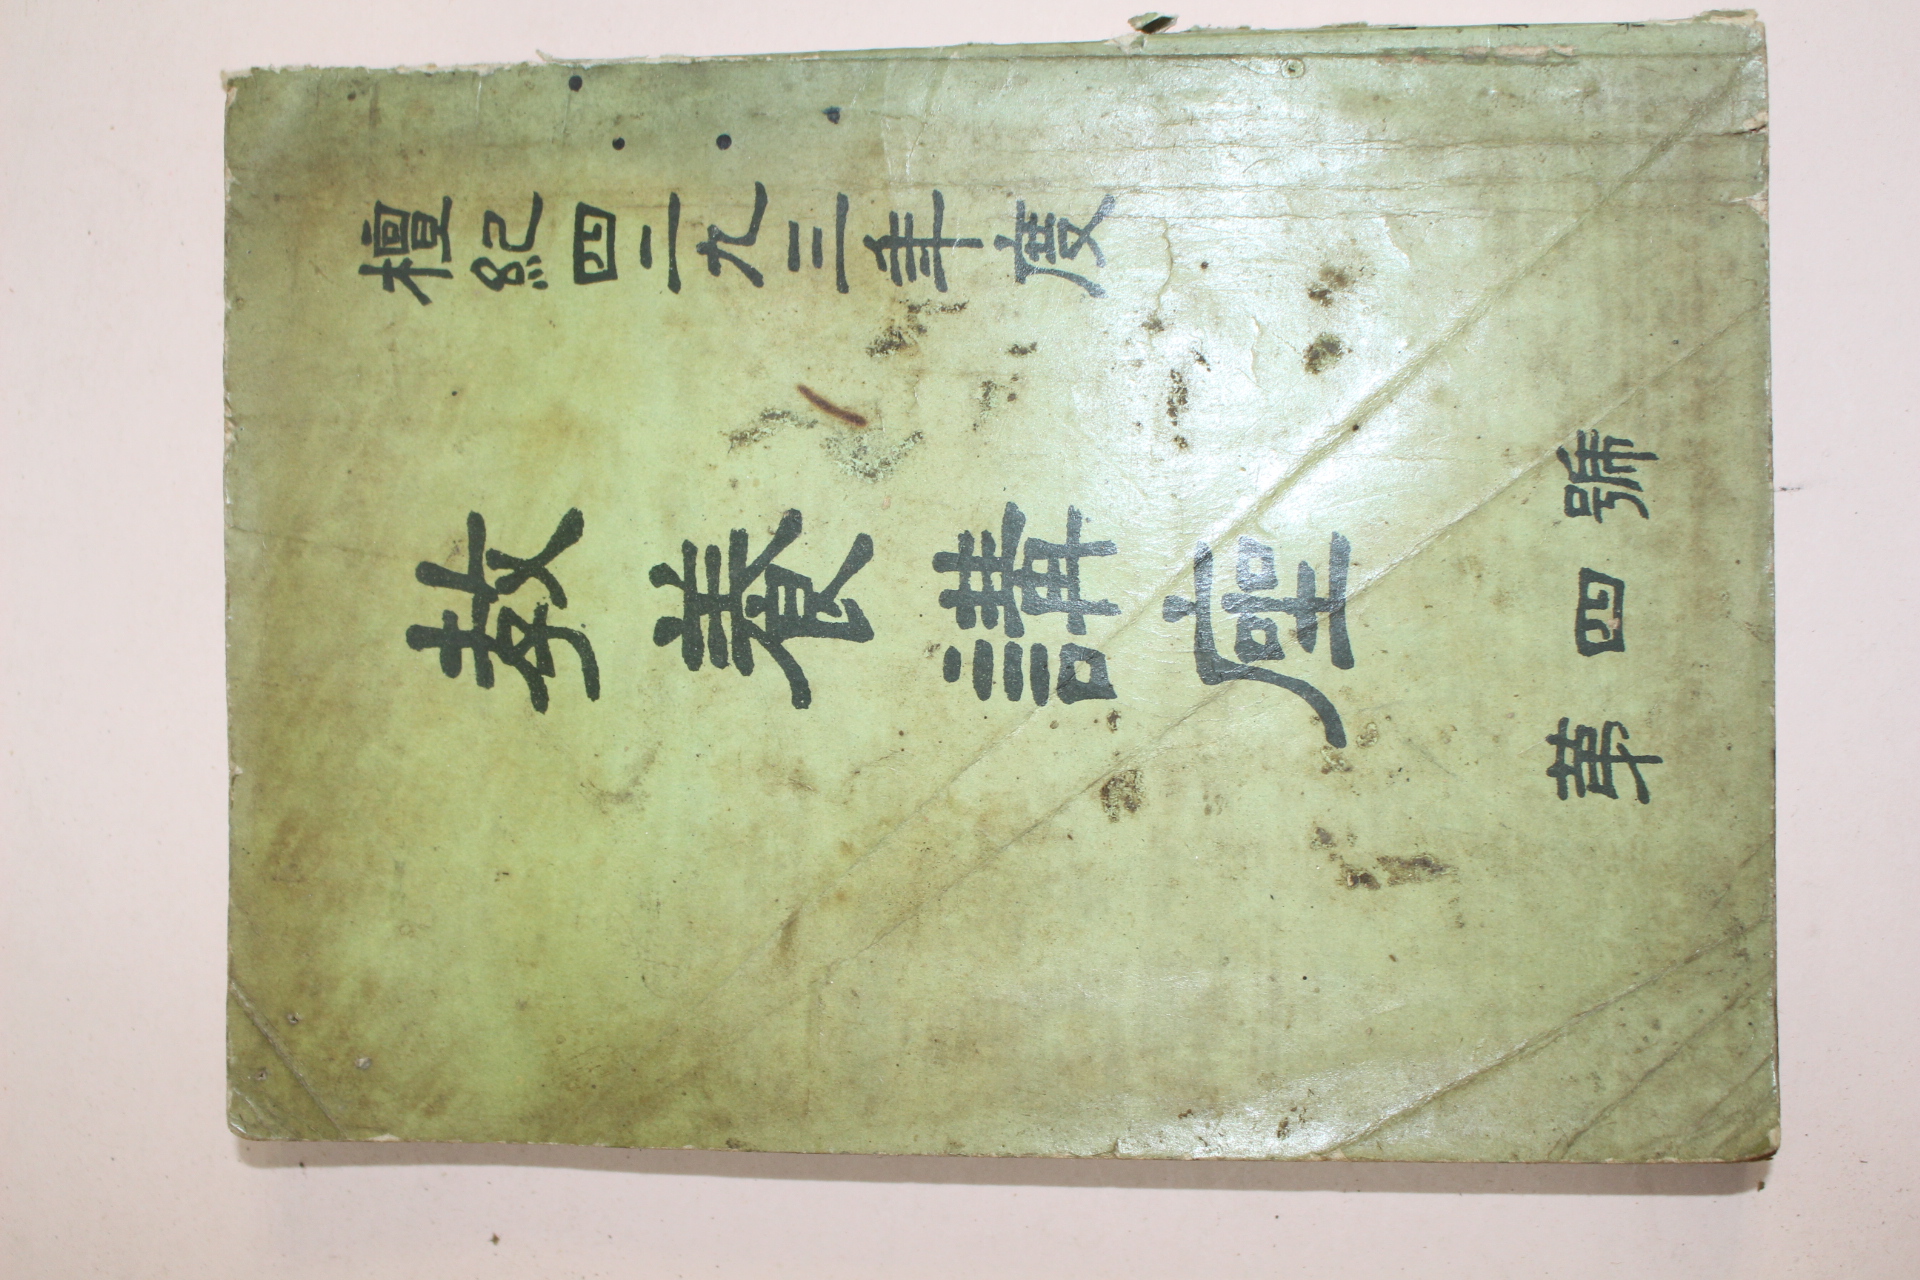 檀紀四二九三年度
敎養講座
第四號